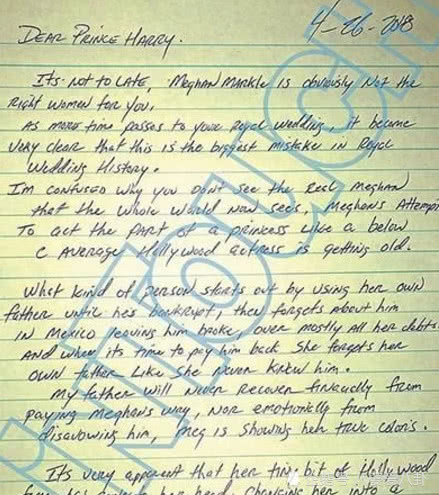 4-26-2018
DEAR PRINCE HARRY.
It's. NOT TO LATE, Meghan Markle is obviously Not the
right women for you.
As more time passes to your Royal Wedding, it became
very clear that this is the biggest mistake in Royal
Wedding History.
I'm confused why you don't see the real Meghan
that the whole world now sees, Meghan's Attempt
To act the part of a princess like a below
C average Hollywood actress is getting old.
What kind of person starts out by using her own
father until he's bankrupt, then forgets about him
in Mexico leaving him broke, over mostly all her debts.
And when its time to pay him back she forgets her
own father like she never knew him.
My father will never recover financially from
paying Meghan's way, nor emotionally from
disavowing him, Meg is showing her true color's.
It's very apparent that her tiny bit of Hollywood
has her head. Changing her into a
InTouch